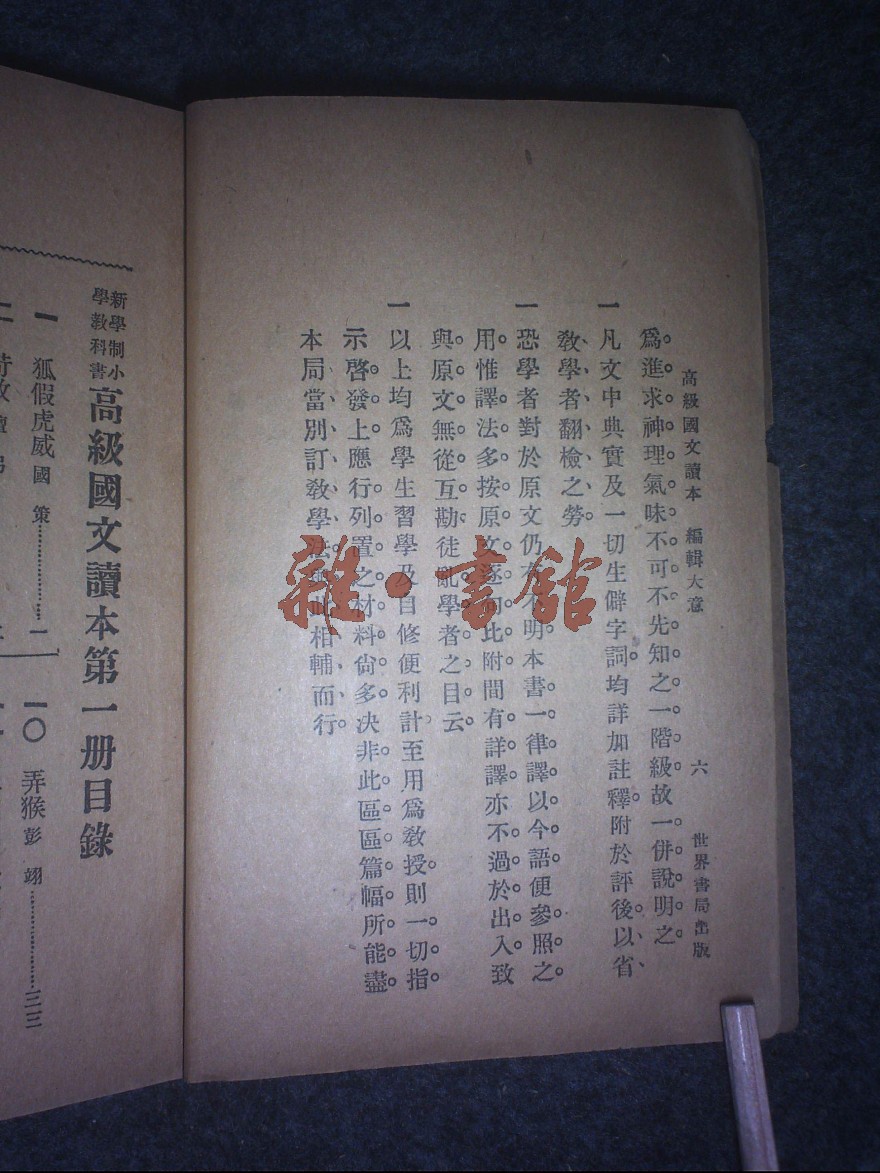 高級國文讀本 編輯大意 六 世界書局出版
爲進求神理氣味不可不先知之一階級故一併說明之。
一凡文中典實及一切生僻字詞均詳加註釋附於評後以省
敎學者翻檢之勞。
一恐學者對於原文仍有不明本書一律譯以今語便參照之
用惟譯法多按原文逐句比附間有詳譯亦不過於出入致
與原文無從互勘徒亂學者之目云。
一以上均爲學生習學及自修便利計至用爲敎授則一切指
示啓發上應行列置之材料尙多決非此區區篇幅所能盡
本局當別訂敎學法與此相輔而行。
新學制小學教科書 高級國文讀本第一册目錄
一 狐假虎威 國策 一
一〇 弄猴 彭翊 三三
雜·書館